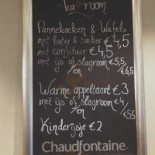 Tea-room
Pannekoeken & Wafels
met Boter & Suiker € 4,5
met confituur € 4,5
met ijs of slagroom € 5,5
en
Warme appeltaart € 3
met ijs of slagroom € 4,5
en
Kinderijsje € 2
Chaudfontaine